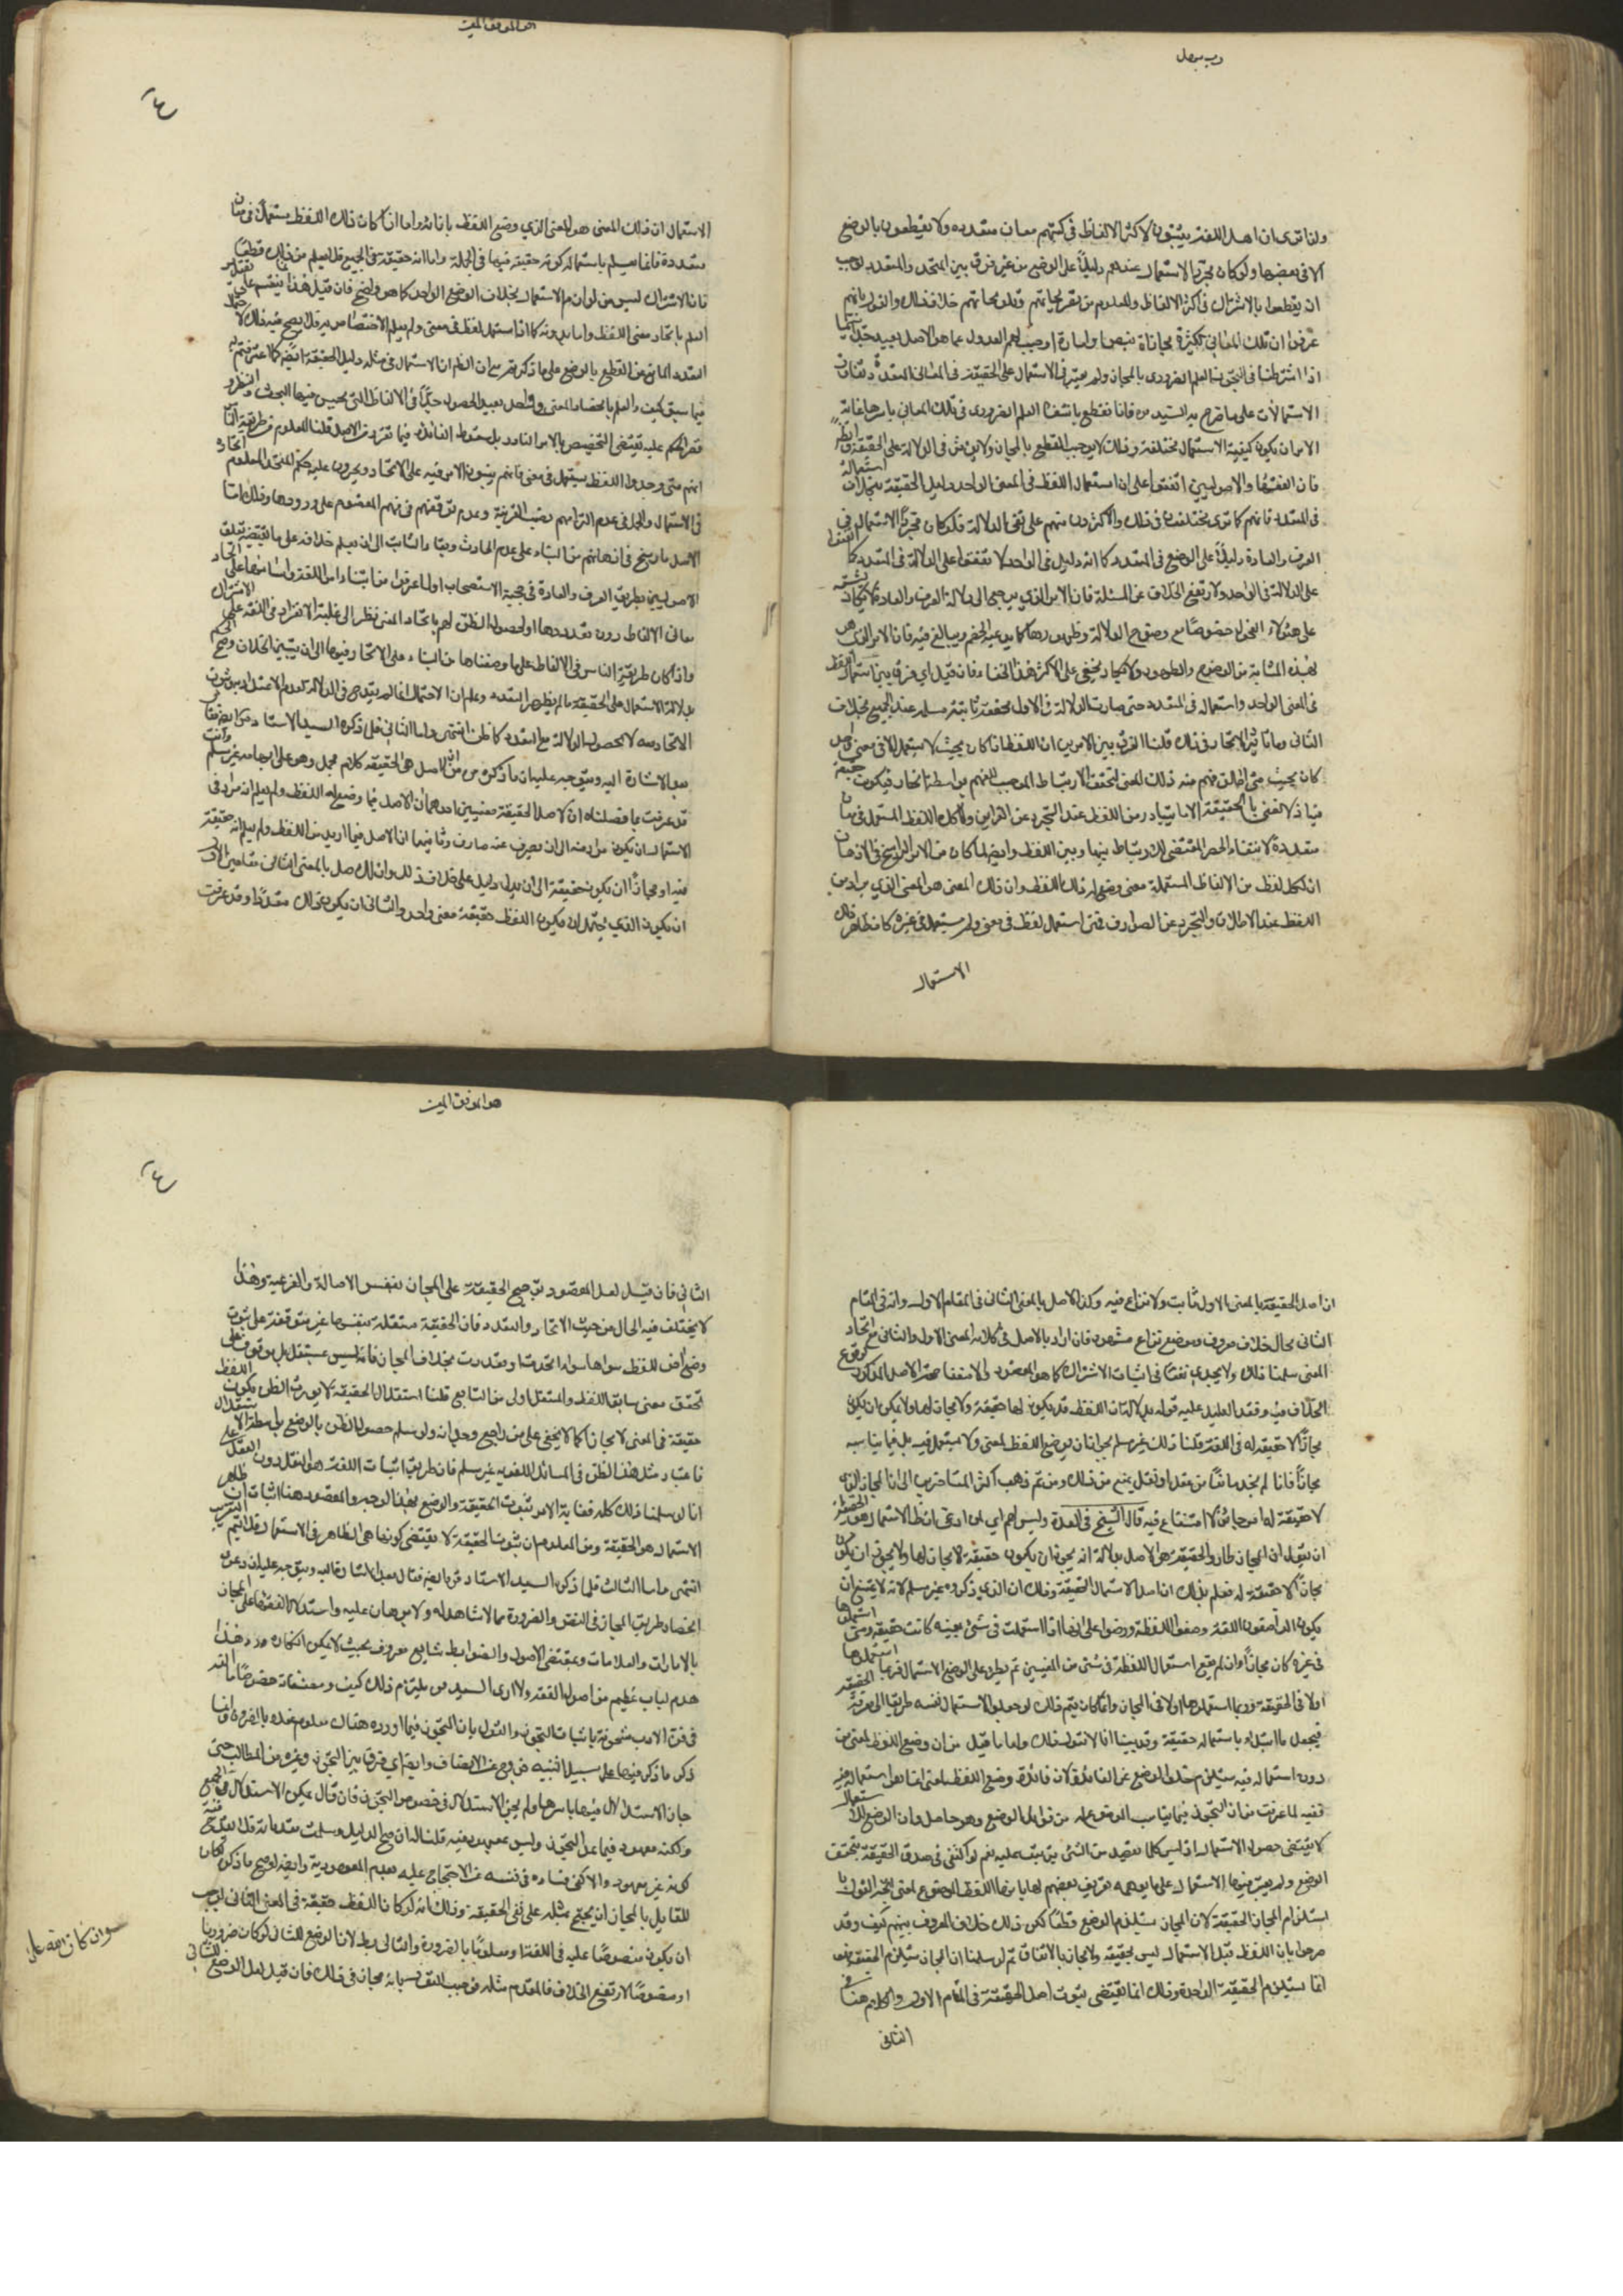 ولذا ترى ان اهل اللغة يثبتون لاكثر الالفاظ فى كتبهم معان متعدده ولا يقطعون بالوضع
الا فى بعضها ولو كان مجرّد الاستعمال عندهم دليلًا على الوضع من غير فرق بين المتحد والمتعدد لوجب
ان يقطعوا بالاشتراك فى اكثر الالفاظ والمعلوم من
عرفوا ان تلك المعانى الكثيرة مجازاة بنصها وامارة اوجب لهم العدول عما هو الاصل بعيد جدًّا
اذا اشترطنا فى التجوز العلم الضرورى بالمجاز ولم يعتبر فى الاستعمال على الحقيقة فى المعانى المتعددة
الاستعمالات على ما صرح به السيد ره فانا نقطع بانتفاء العلم الضرورى فى تلك المعانى باسرها غاية
الامر ان يكون كيفية الاستعمال مختلفة وذلك لا يوجب القطع بالمجاز ولا يؤثر فى الدلالة على الحقيقة
فان الفقهاء والاصوليين اتفقوا على ان استعمال اللفظ فى المعنى الواحد دليل الحقيقة بخلاف استعماله
فى المتعدد فانهم كما ترى مختلفون فى ذلك والاكثرون منهم على نفى الدلالة فلو كان مجرّد الاستعمال فى
العرف والعادة دليلًا على الوضع فى المتعدد كما انه دليل فى الواحد لاتفقوا على الدلالة فى المتعدد كما اتفقوا
على الدلالة فى الواحد ولارتفع الخلاف عن المسئلة فان الامر الذى يرجع الى دلالة العرف والعادة لا يكاد يشتبه
على هؤلاء الفحول خصوصًا مع وضوح الدلالة وظهورها كما يدعيه الخصم ويبالغ فيه فان الامر الذى هو
بهذه المثابة من الوضوح والظهور لا يكاد يخفى على الاكثر هذا الخفاء فان قيل اى فرق بين استعمال اللفظ
فى المعنى الواحد واستعماله فى المتعدد حتى صارت الدلالة فى الاول محققة ثابتة مسلمه عند الجميع بخلاف
الثانى وما تأثير الاتحاد فى ذلك قلنا الفرق بين الامرين ان اللفظ اذا كان بحيث لا يستعمل الا فى معنى واحد
كان بحيث متى اطلق فهم منه ذلك المعنى لتحقق الارتباط الموجب للفهم بواسطة الاتحاد فيكون حقيقة
فيه اذ لا نعنى بالحقيقة الا ما يتبادر من اللفظ عند التجرد عن القراين ولا كك اللفظ المستعمل فى معان
متعددة لانتفاء الحصر المقتضى للارتباط بينها وبين اللفظ وايضا لما كان من الامر الراسخ فى الاذهان
ان لكل لفظ من الالفاظ المستعملة معنى وضع له ذلك اللفظ وان ذلك المعنى هو المعنى الذي يراد من
اللفظ عند الاطلاق والتجرد عن الصوارف فمتى استعمل لفظ فى معنى ولم يستعمل فى غيره كان ظاهر ذلك
الاستعمال
هو الموفق المعين
الاستعمال ان ذلك المعنى هو المعنى الذي وضع اللفظ بازائه واما اذا كان ذلك اللفظ مستعملًا فى معان
متعددة فانما يعلم باستعماله كونه حقيقة فيها فى الجملة واما انه حقيقة فى الجميع فلا يعلم من ذلك قطعًا
فان الاشتراك ليس من لوازم الاستعمال بخلاف الوضع الواحد كما هو واضح فان قيل هذا
العلم باتحاد معنى اللفظ واما بدونه كما اذا استعمل لفظ فى معنى ولم يعلم الاختصاص به فلا يصح
التعدد المانع من القطع بالوضع على ما ذكرتم مع ان الظاهر ان الاستعمال فى مثله دليل الحقيقة ايضا كما اعترفتم به
فيما سبق كيف والعلم بانحصار المعنى فى واحد بعيد الحصول جدًّا فى الالفاظ التى يحسن فيها البحث والنظر
فقصر الحكم عليه يقتضى التخصيص بالامر النادر بل سقوط الفائدة فيما تقرر من الاصل قلنا المعلوم من طريقة الناس
انهم متى وجدوا اللفظ يستعمل فى معنى فانهم يبنون الامر فيه على الاتحاد ويجرون عليه حكم المتحد المعلوم
فى الاستعمال والحمل فى عدم التزامهم نصب القرينة وعدم توقفهم فى فهم المقصود على ورودها وذلك
الاصل الراسخ فى اذهانهم من البناء على عدم الحادث وبقاء الثابت الى ان يعلم خلافه على ما يقتضيه
الاصوليين بطريق العرف والعادة فى حجية الاستصحاب او لما عرفوا من ابتناء امر اللغة واساسها على اتحاد
معانى الالفاظ دون تعددها او لحصول الظن لهم باتحاد المعنى نظر الى غلبة الانفراد فى اللغة على الاشتراك
واذا كان طريقة الناس فى الالفاظ على ما وصفناها من البناء على الاتحاد فيها الى ان يتبين الخلاف وضح
بدلالة الاستعمال على الحقيقة ما لم يظهر التعدد وعلم ان الاحتمال اذا لم
الاتحاد معه لا بحصول الدلالة مع التعدد كما ظن انتهى واما الثانى فلما ذكره السيد الاستاد
بعد الاشارة اليه ويتوجه عليه ان ما ذكره من ان الاصل هى الحقيقه كلام مجمل وهو على اجماله غير مسلم وانت
قد عرفت بما فصلناه ان لاصل الحقيقة معنيين احدهما ان الاصل فيما وضع له اللفظ ولم يعلم انه مراد فى
الاستعمال ان يكون مرادا منه الى ان يصرف عنه صارف وثانيهما ان الاصل فيما اريد من اللفظ ولم يعلم انه حقيقة
فيه او مجازًا ان يكون حقيقة الى ان يدل دليل على خلاف ذلك وان للاصل بالمعنى الثانى مقامين الاول
ان يكون الذي يحتمل ان يكون اللفظ حقيقة معنى واحد والثانى ان يكون ذلك متعددًا وقد عرفت
ان اصل الحقيقة بالمعنى الاول ثابت ولا نزاع فيه وكذا الاصل بالمعنى الثانى فى المقام الاول وانه فى المقام
الثانى محل خلاف معروف وموضع نزاع مشهور فان اراد بالاصل فى كلامه المعنى الاول والثانى مع اتحاد
المعنى سلمنا ذلك ولا يجديه نفعًا فى اثبات الاشتراك كما هو المقصود والا منعنا صحة الاصل المذكور لوقوع
الخلاف فيه وفقد الدليل عليه قوله بدلالة ان اللفظ قد يكون لها حقيقة ولا مجاز لها ولا يمكن ان يكون
مجازًا لا حقيقة له فى اللغة قلنا ذلك غير مسلم بجواز ان يوضع اللفظ لمعنى ولا يستعمل فيه بل فيما يناسبه
مجازًا فانا لم نجد مانعًا من عقل او نقل يمنع من ذلك ومن ثم ذهب اكثر المتاخرين الى ان المجاز الذى
لا حقيقة له امر جائز لا امتناع فيه قال الشيخ فى العدة وليس لهم اى لمن ادعى ان ظاهر الاستعمال هو الحقيقة
ان يقول ان المجاز طار والحقيقة هى الاصل بدلالة انه يجوز ان يكون حقيقة لا مجاز لها ولا يجوز ان يكون
مجازًا لا حقيقة له فعلم بذلك ان اصل الاستعمال الحقيقة وذلك ان الذي ذكروه غير مسلم لانه لا يمتنع ان
يكون الواضعون للغة وضعوا اللفظة ورضوا على انها اذا استعملت فى شئ بعينه كانت حقيقة ومتى استعملوها
فى غيره كان مجازًا وان لم يقع استعمال اللفظة فى شئ من المعنيين ثم يطرء على الوضع الاستعمال فربما استعملوها
اولا فى الحقيقة وربما استعملوها اولا فى المجاز وانما كان يتم ذلك لو جعلوا الاستعمال نفسه طريقا الى معرفة الحقيقة
فيجعل ما ابتدؤ باستعماله حقيقة وقد بينا انا لا نقول ذلك واما ما قيل من ان وضع اللفظ لمعنى من
دون استعماله فيه يستلزم خلو الوضع عن الفائدة لان فائدة وضع اللفظ لمعنى انما هى استعماله فيه
ففيه لما عرفت من ان التجوز فيما يناسب الموضوع له من فوائد الوضع وهو حاصل وان الوضع للاستعمال
لا يقتضى حصول الاستعمال اذ ليس كلما يقصد من الشئ يترتب عليه نعم لو اكتفى فى صدق الحقيقة بتحقق
الوضع ولم يعتبر فيها الاستعمال على ما يوهمه تعريف بعضهم لها بانها اللفظ الموضوع لمعنى اتجه القول با
ستلزام المجاز الحقيقة لان المجاز يستلزم الوضع قطعًا لكن ذلك خلاف المعروف بينهم كيف وقد
صرحوا بان اللفظ قبل الاستعمال ليس بحقيقة ولا مجاز بالاتفاق ثم لو سلمنا ان المجاز يستلزم الحقيقة فهو
انما يستلزم الحقيقة الواحدة وذلك انما يقتضى ثبوت اصل الحقيقة فى المقام الاول والكلام هنا فى
الثانى
هو الموفق المعين
الثانى فان قيل لعل المقصود ترجيح الحقيقة على المجاز بنفس الاصالة والفرعية وهذا
لا يختلف فيه الحال من حيث الاتحاد والتعدد فان الحقيقة مستقلة بنفسها غير متوقفة على ثبوت
وضع اخر للفظ سواها سواء اتحدت او تعددت بخلاف المجاز فانه ليس بمستقل بل يتوقف على
تحقق معنى سابق اللفظ والمستقل اولى من التابع قلنا استقلال الحقيقة لا يورث الظن بكون اللفظ
حقيقة فى المعنى لا مجازًا كما لا يخفى على من راجع وجدانه ولو سلم حصول الظن بالوضع بواسطة الاستقلال
فاعتبار مثل هذا الظن فى المسائل اللغويه غير مسلم فان طريق اثبات اللغة هو النقل دون العقل على
انا لو سلمنا ذلك كله فغاية الامر ثبوت الحقيقة والوضع بهذا الوجه والمقصود هنا اثبات ان ظاهر
الاستعمال هو الحقيقة ومن المعلوم ان ثبوت الحقيقة لا يقتضى كونها هى الظاهر فى الاستعمال فلا يتم التقريب
انتهى واما الثالث فلما ذكره السيد الاستاد ايضا فقال بعد الاشارة اليه ويتوجه عليه ان دعوى
انحصار طريق المجاز فى النص والضرورة مما لا شاهد له ولا برهان عليه واستدلال الفقهاء على المجاز
بالامارات والعلامات وبمقتضى الاصول والضوابط شايع معروف بحيث لا يمكن انكاره ورد هذا
هدم لباب عظيم من اصول الفقه ولا ارى السيد ره يلتزم ذلك كيف ومصنفاته خصوصًا ما الفه
فى فن الادب مشحونة باثبات التجوز والقول بان التجوز فيما اورده هناك معلوم عنده بالضرورة وانما
ذكر ما ذكر فيها على سبيل التنبيه خروج عن الانصاف وايضا اى فرق بين التجوز وغيره من المطالب حتى
جاز الاستدلال فيها باسرها ولم يجز الاستدلال فى خصوص التجوز فان قال يمكن الاستدلال فى الجميع
ولكنه معهود فيما عدا التجوز وليس بمعهود فيه قلنا له ان صح الدليل وسلمت مقدماته فلا يقدح فيه
كونه غير معهود والا كفى فساده فى نفسه عن الاحتجاج عليه بعدم المعهودية وايضا لو صح ما ذكره لكان
للقايل بالمجاز ان يحتج بمثله على نفى الحقيقة وذلك انه لو كان اللفظ حقيقة فى المعنى الثانى لوجب
ان يكون منصوصًا عليه فى اللغة او معلومًا بالضرورة والتالى بط لان الوضع للثانى لو كان ضروريا
او منصوصًا لارتفع الخلاف فالمقدم مثله فوجب القول بانه مجاز فى ذلك فان قيل لعل الوضع للثانى